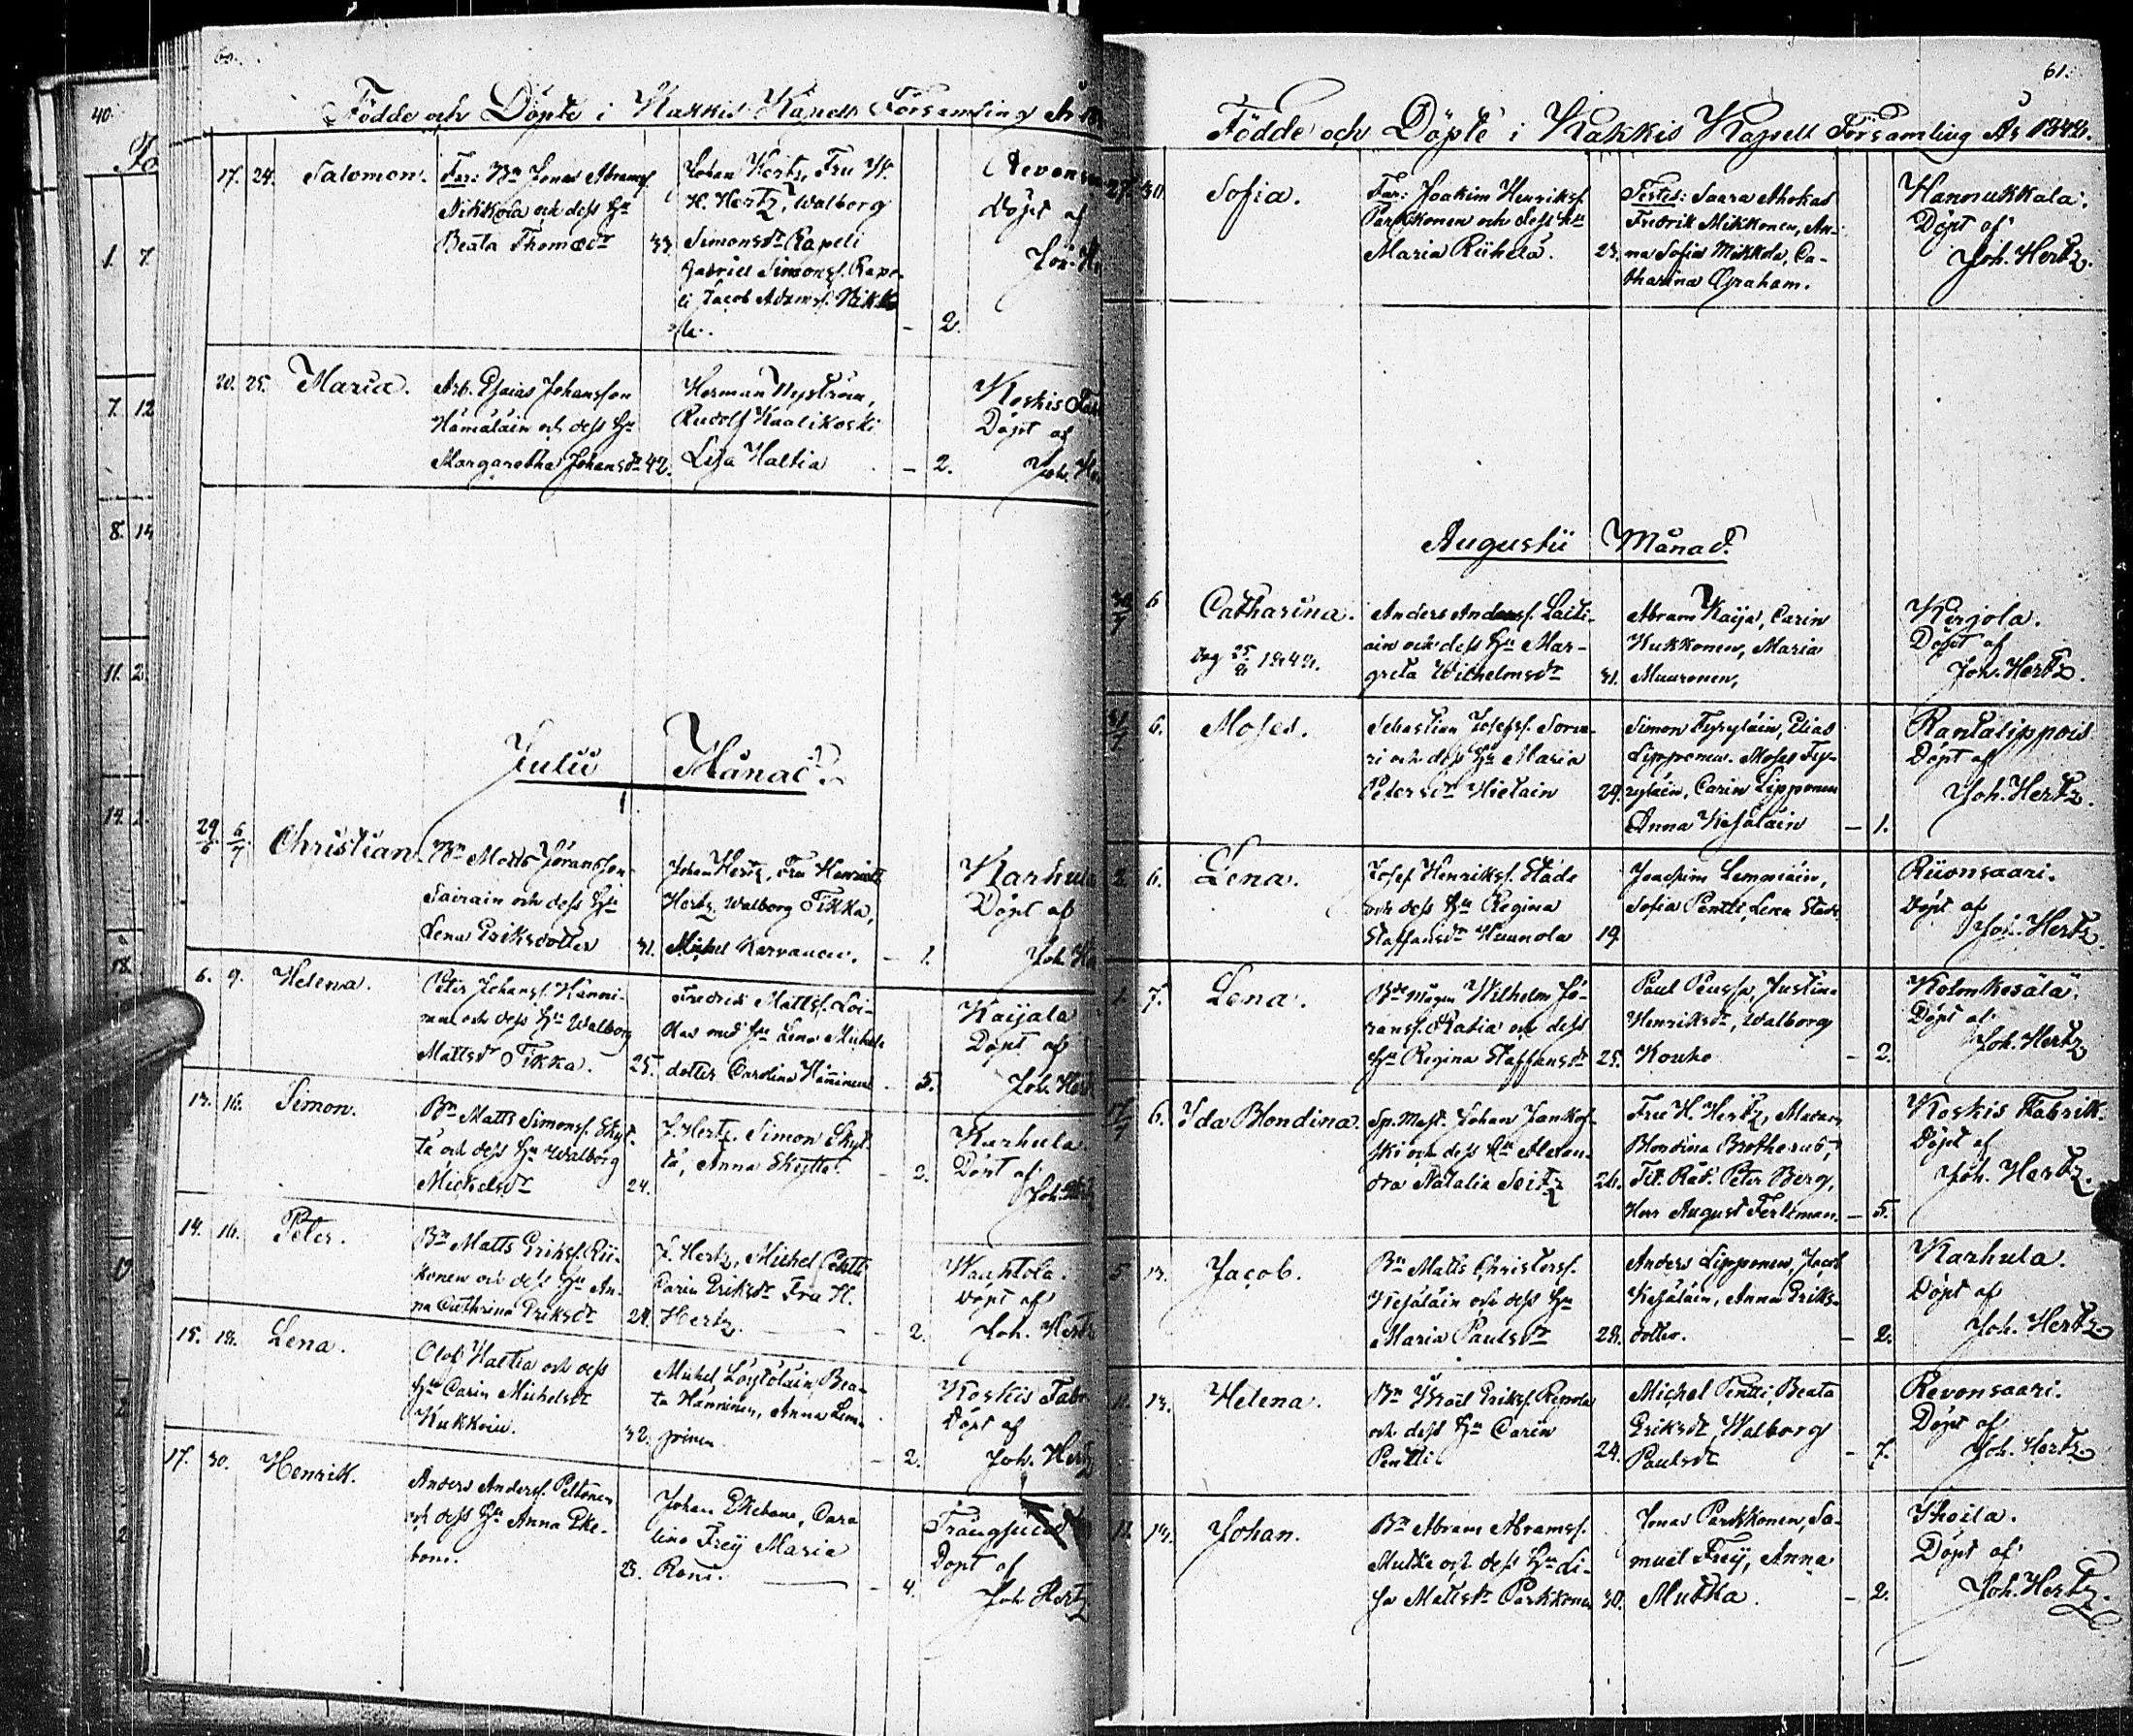 60.
Födde och Döpte i Kakkis Kapells Församling År
17. 24. Salomon.
Far: Bn Jonas Abramss.
Nikkola och dess Hu
Beata Thomasdr 33.
Johan Hertz, Fru H.
H. Hertz, Walborg
Simonsdr Rapeli
Gabriel Simonss. Rape-
li Jacob Adamss. Nikko
la.
– 2.
Revons
Döpt af
Joh. H
20. 25. Maria.
Arb. Esaias Johansson
Hämäläin och dess Hu
Margaretha Johansdr 42.
Herman Nyström,
Rudolf Kaalikoski
Lisa Haltia
– 2.
Koskis Fab
Döpt af
Joh. He
Julii Månad.
29/6 6/7 Christian
Bn Matts Göransson
Sairain och dess Hu
Lena Eriksdotter 31.
Johan Hertz, Fru Henriette
Hertz, Walborg Tikka,
Michel Karvanen.
– 1.
Karhula
Döpt af
Joh. He
6. 9. Helena.
Peter Johanss. Hänni-
nen och dess Hu Walborg
Mattsdr Tikka. 25.
Fredrik Mattss. Loi-
kas med Hu Lena Michels
dotter Carolina Hänninen
– 5.
Kaijala
Döpt af
Joh. Hert
13. 16. Simon.
Bn Matts Simonss. Skyt-
tä och dess Hu Walborg
Michelsdr 24.
J. Hertz. Simon Skyt-
tä, Anna Skyttä.
– 2.
Karhula.
Döpt af
Joh. Hertz
14. 16. Peter.
Bn Matts Erikss. Rii-
konen och dess Hu An-
na Cathrina Eriksdr 24.
J. Hertz, Michel Pentti
Carin Eriksdr Fru H.
Hertz.
– 2.
Waahtola.
Döpt af
Joh. Hertz
15. 18. Lena.
Olof Haltia och dess
Hu Carin Michelsdr
Kukkoin. 32.
Michel Löytöläin, Bea-
ta Hänninen, Anna Lem-
pinen
– 2.
Koskis Fabr
Döpt af
Joh. Hertz
17. 30. Henrik.
Anders Anderss. Peltonen
och dess Hu Anna Eke-
bom. 23.
Johan Ekebom, Caro
lina Frey Maria
Romi.
– 4.
Trångsund
Döpt af
Joh Hertz
61.
Födde och Döpte i Kakkis Kapell Församling År 1842.
27. 30. Sofia.
Far: Joakim Henrikss.
Parkkonen och dess Hu
Maria Riihelä. 23.
Testes: Saara Ahokas
Fredrik Mikkonen, An-
na Sofia Mikkola, Ca-
tharina Graham.
Hannukkala.
Döpt af
Joh. Hertz.
Augustii Månad.
30/7 6 Catharina.
Anders Anderss. Laiti-
ain och dess Hu Mar-
greta Wilhelmsdr 31.
Abram Kaija, Carin
Kukkonen, Maria
Muuronen,
Kerjola.
Döpt af
Joh. Hertz.
31/7 6. Moses.
Sebastian Josefss. Sorva-
ri och dess Hu Maria
Petersdr Hietain 29.
Simon Tyryläin, Elias
Lipponen. Moses Ty-
ryläin, Carin Lipponen
Anna Kesäläin
– 1.
Rantalippois
Döpt af
Joh. Hertz.
2. 6. Lena.
Josef Henrikss. Stade
och dess Hu Regina
Staffansdr Huunola 19.
Joachim Lempiäin,
Sofia Pentti, Lena Stade
Riionsaari.
Döpt af
Joh. Hertz.
1. 7. Lena.
Bde Mågen Wilhelm Jö-
ranss. Ratia och dess
Hu Regina Staffansdr 25.
Paul Peussa, Justina
Henriksdr, Walborg
Kouho
– 2.
Kolmkesälä.
Döpt af
Joh. Hertz
6. Ida Blondina.
Sp. Mast. Johan Jankof-
ski och dess Hu Alexan-
dra Natalia Seitz 26.
Fru H. Hertz,
Blondina Brotherus,
Tit. Råd. Peter Berg,
Herr August Ferltzman.
– 5.
Koskis Fabrik.
Döpt af
Joh. Hertz.
5 13. Jacob.
Bn Matts Christerss.
Kesäläin och dess Hu
Maria Paulsdr 28.
Anders Lipponen, Jacob
Kesäläin, Anna Eriks-
dotter.
– 2.
Karhula.
Döpt af
Joh. Hertz.
13. Helena.
Bn Israel Erikss. Repola
och dess Hu Carin
Pentti 24.
Michel Pentti, Beata
Eriksdr, Walborg
Paulsdr
– 7.
Revonsaari.
Döpt af
Joh. Hertz
13. Johan.
Bn Abram Abramss.
Mutka och dess Hu Li-
sa Mattsdr Parkkonen 30.
Jonas Parkkonen, Sa-
muel Frey, Anna
Mutka.
– 2.
Ihoila.
Döpt af
Joh. Hertz.